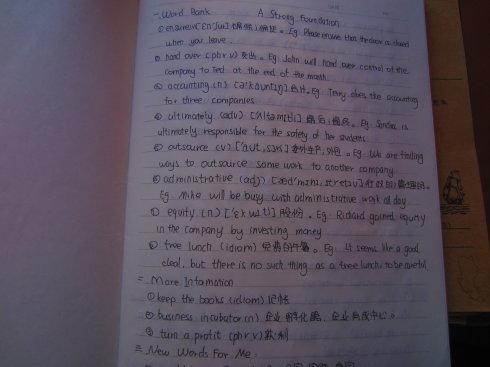 一. Word Bank A Strong Foundation
① ensure(v) [ɪn'ʃuɪ] 确保；保证。Eg. Please ensure that the door is closed
when you leave.
② hand over (phr v) 交出。Eg. John will hand over control of the
company to Ted at the end of the month.
③ accounting (n) [ə'kauntɪŋ] 会计。Eg. Terry does the accounting
for three companies.
④ ultimately (adv) 最后；最终。Eg. Sandra is
ultimately responsible for the safety of her students.
⑤ outsource (v) 外包。Eg. We are finding
ways to outsource some work to another company.
⑥ administrative (adj) 行政的；管理的。
Eg. Mike will be busy with administrative work all day
⑦ equity (n) ['ɛkwɪti] 股份。Eg. Richard gained equity
in the company by investing money
⑧ free lunch (idiom) 免费的午餐。Eg. It seems like a good
deal, but there is no such thing as a free lunch, so be careful
二. More Information
① keep the books (idiom) 记帐
② business incubator (n) 企业孵化器，企业育成中心。
③ turn a profit (phr v) 获利
三. New Words For Me: